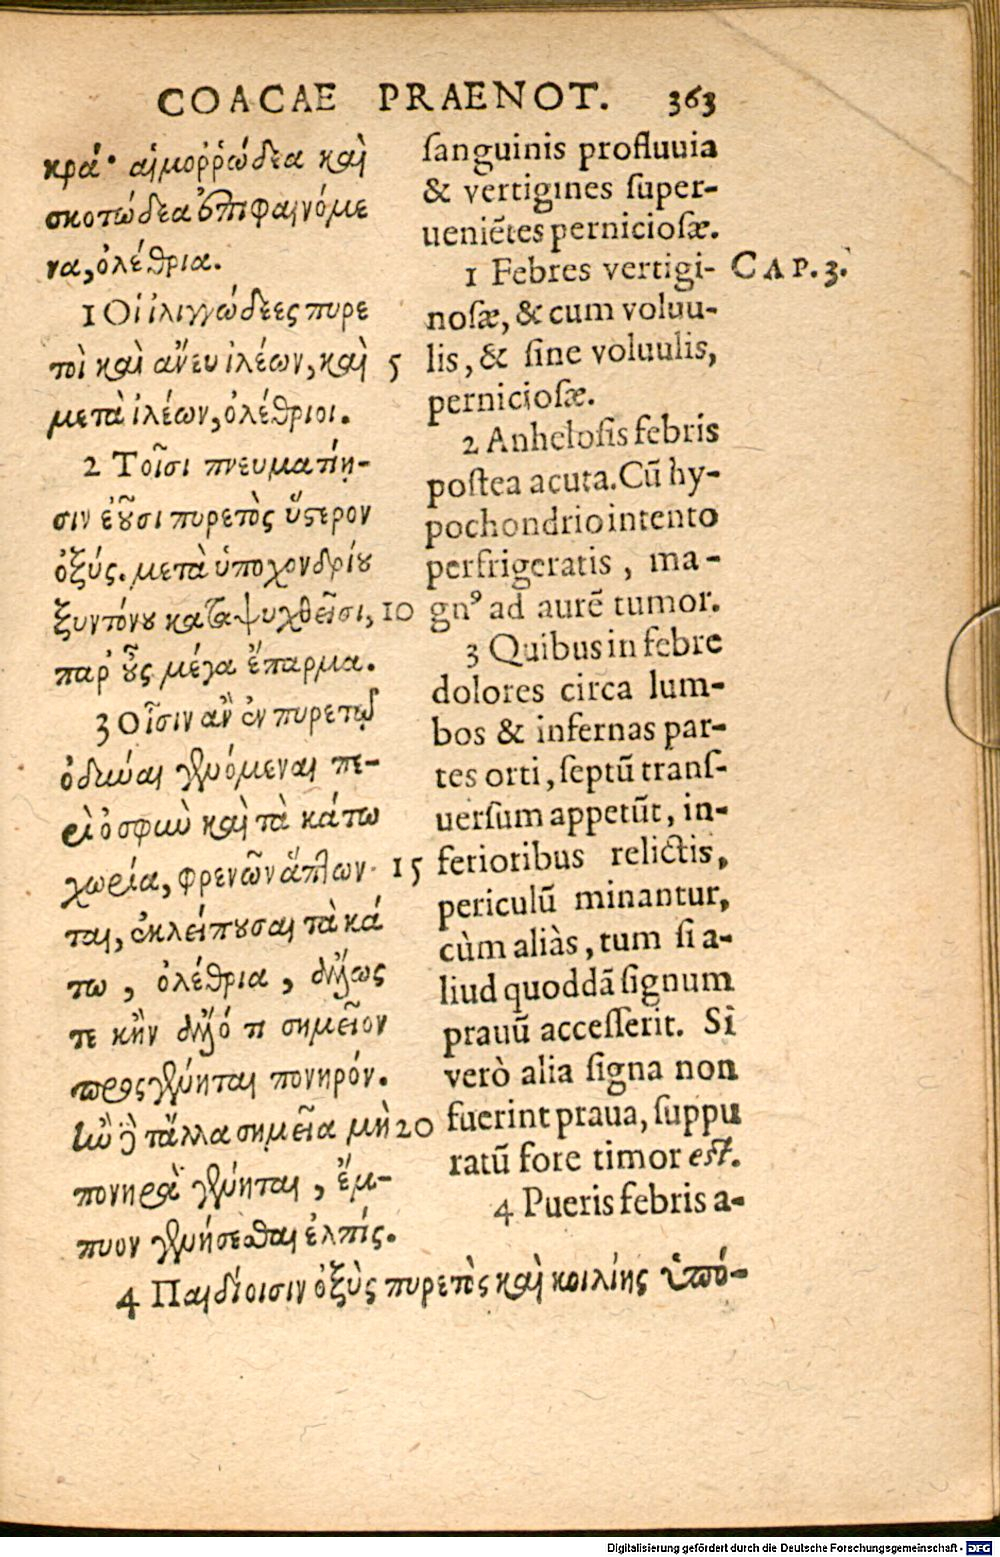 COACAE PRAENOT. 363
κρά· αἱμοῤῥώδεα καὶ
σκοτώδεα ἐπιφαινόμε
να, ὀλέθρια.
1 Οἱ ἰλιγγώδεες πυρε
τοὶ καὶ ἄνευ ἰλέων, καὶ
μετὰ ἰλέων, ὀλέθριοι.
2 Τοῖσι πνευματίῃ-
σιν ἐοῦσι πυρετὸς ὕστερον
ὀξύς. μετὰ ὑποχονδρίου
ξυντόνου καταψυχθεῖσι,
παρ' οὖς μέγα ἔπαρμα.
3 Οἷσιν ἂν ἐν πυρετῷ
ὀδύναι γινόμεναι πε-
ρὶ ὀσφῦν καὶ τὰ κάτω
χωρία, φρενῶν ἅπτων
ται, ἐκλείπουσαι τὰ κά
τω, ὀλέθρια, ἄλλως
τε κἢν ἄλλό τι σημεῖον
προσγένηται πονηρόν.
ἢν δὲ τἄλλα σημεῖα μὴ
πονηρὰ γένηται, ἔμ-
πυον γενήσεσθαι ἐλπίς.
4 Παιδίοισιν ὀξὺς πυρετὸς καὶ κοιλίης ὑπό-
5
10
15
20
sanguinis profluuia
& vertigines super-
ueniẽtes perniciosæ.
1 Febres vertigi-
nosæ, & cum voluu-
lis, & sine voluulis,
perniciosæ.
2 Anhelosis febris
postea acuta. Cũ hy-
pochondrio intento
perfrigeratis, ma-
gnꝰ ad aurẽ tumor.
3 Quibus in febre
dolores circa lum-
bos & infernas par-
tes orti, septũ transf-
uersum appetũt, in-
ferioribus relictis,
periculũ minantur,
cùm aliàs, tum si a-
liud quoddã signum
prauũ accesserit. Si
verò alia signa non
fuerint praua, suppu
ratũ fore timor est.
4 Pueris febris a-
CAP. 3.
Digitalisierung gefördert durch die Deutsche Forschungsgemeinschaft - DFG